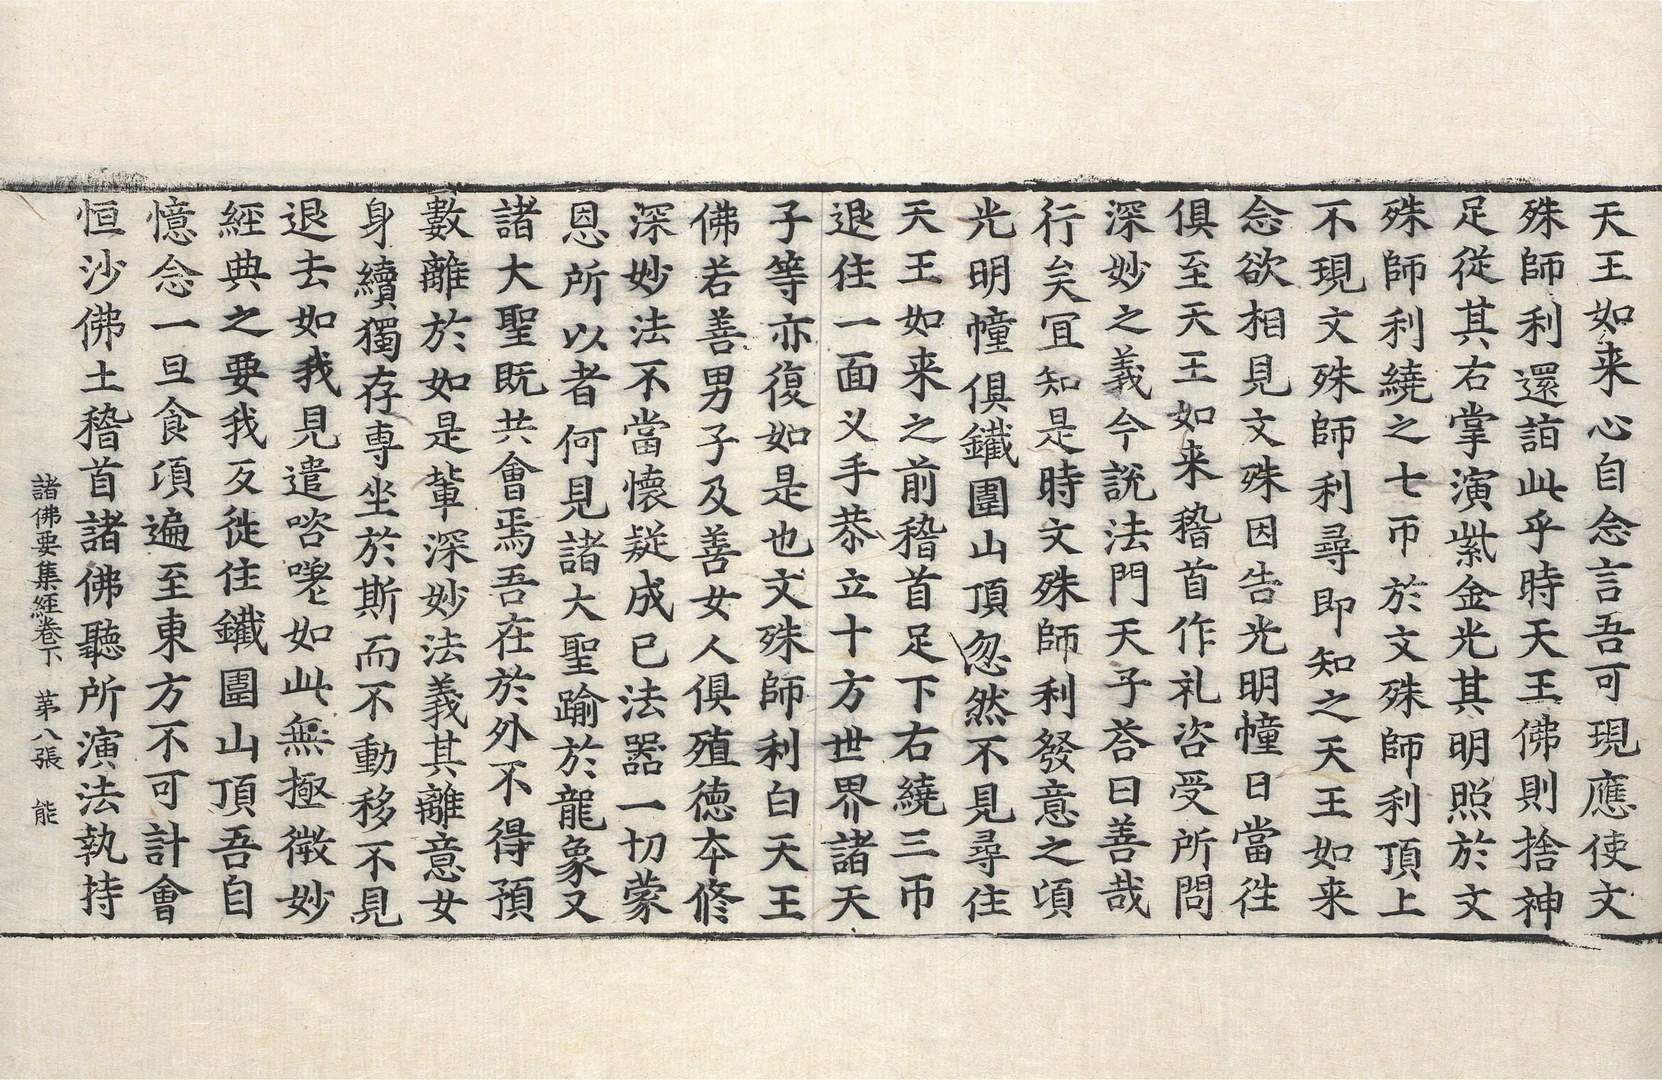 天王如来心自念言吾可現應使文
殊師利還詣此乎時天王佛則捨神
足從其右掌演紫金光其明照於文
殊師利繞之七帀於文殊師利頂上
不現文殊師利尋即知之天王如来
念欲相見文殊因告光明幢曰當徃
俱至天王如来稽首作礼咨受所問
深妙之義今說法門天子荅曰善哉
行矣冝知是時文殊師利發意之頃
光明幢俱鐵圍山頂忽然不見尋住
天王如来之前稽首足下右繞三帀
退住一面叉手恭立十方世界諸天
子等亦復如是也文殊師利白天王
佛若善男子及善女人俱殖德夲修
深妙法不當懷疑成已法器一切蒙
恩所以者何見諸大聖踰於龍象又
諸大聖既共會焉吾在於外不得預
數離於如是軰深妙法義其離意女
身續獨存専坐於斯而不動移不見
退去如我見遣咨嗟如此無極微妙
經典之要我反徙住鐵圍山頂吾自
憶念一旦食項遍至東方不可計會
恒沙佛土稽首諸佛聽所演法執持
諸佛要集經卷下 苐八張 能